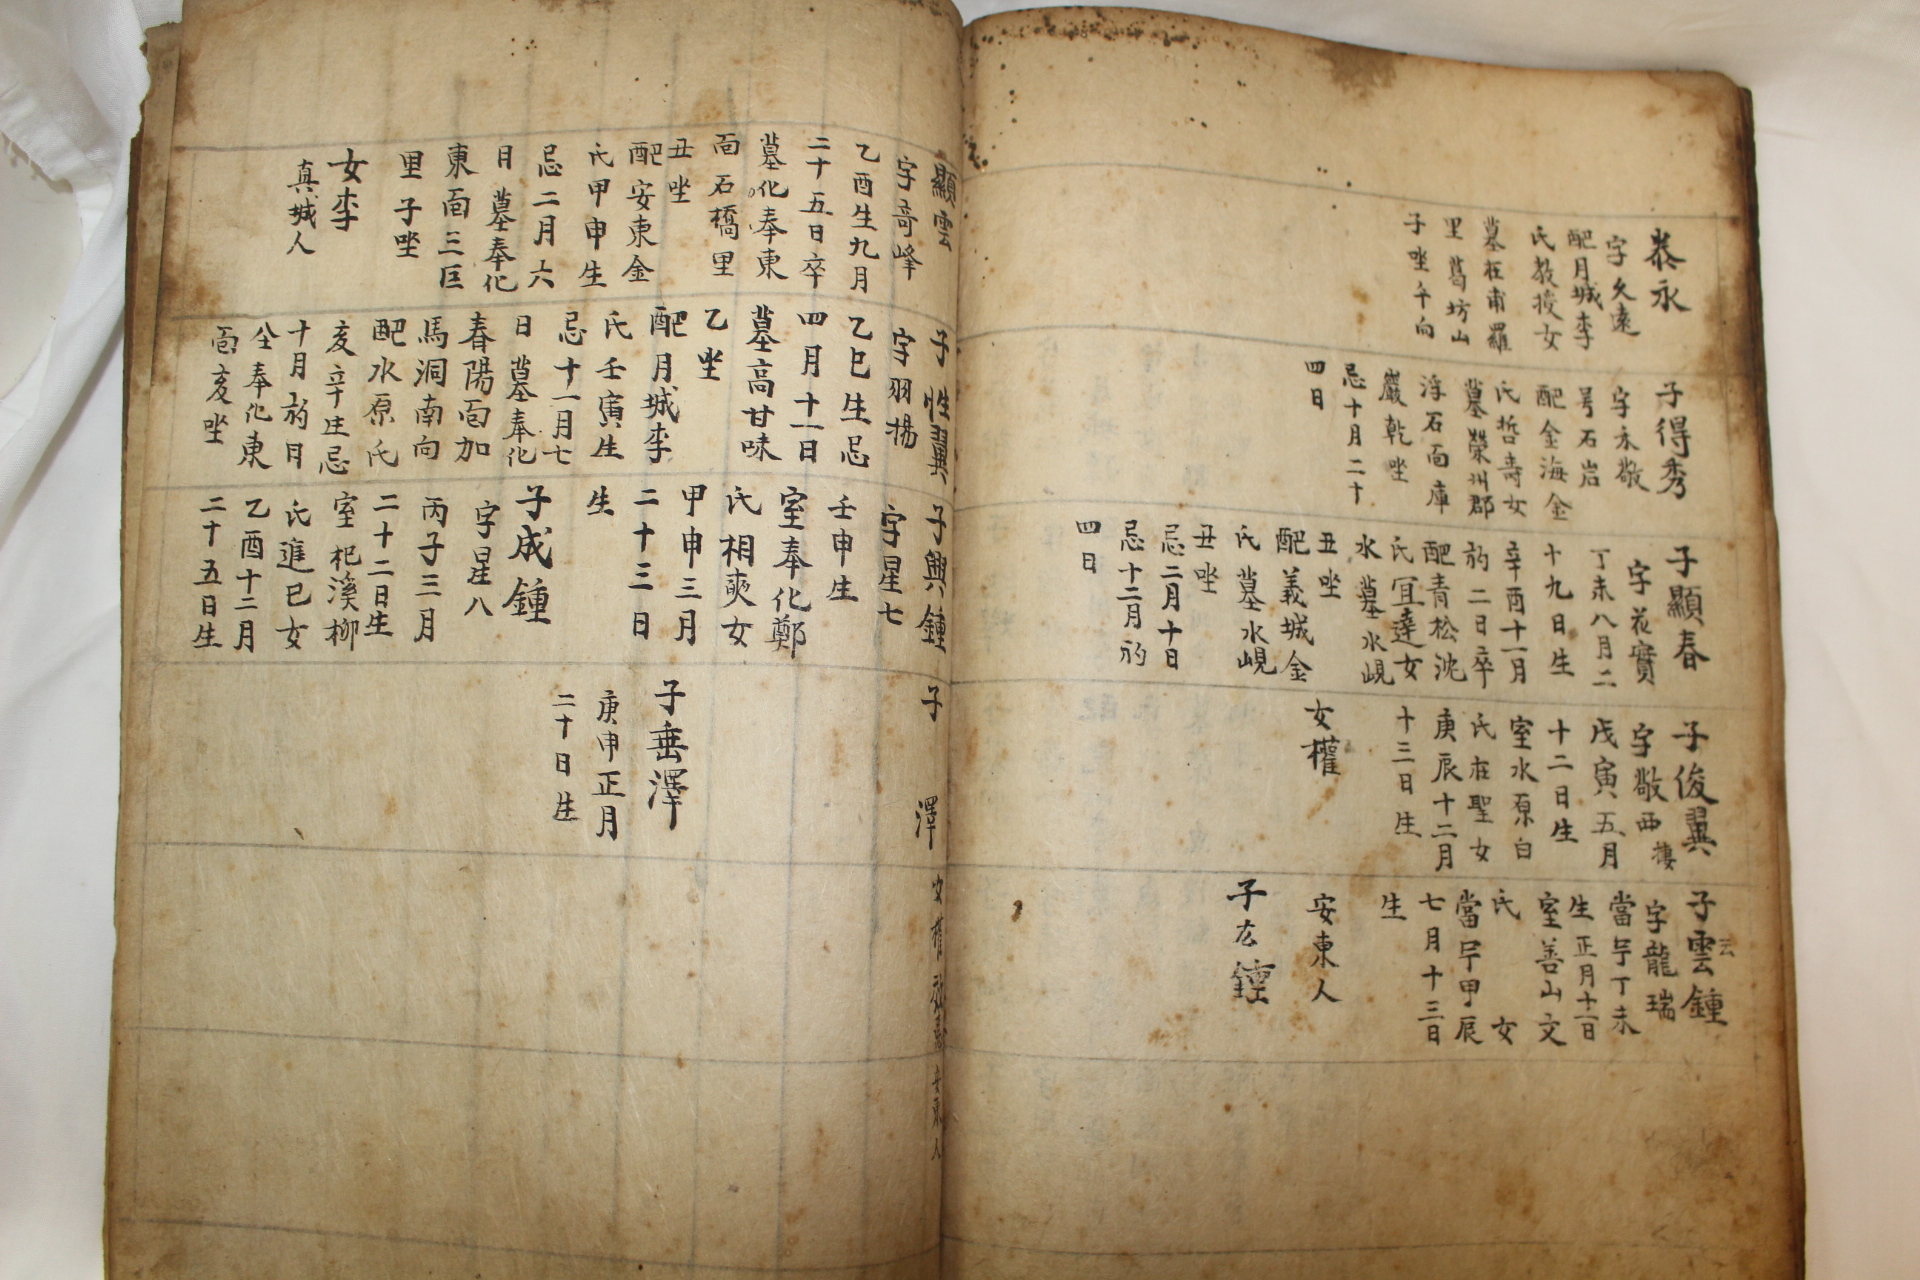 泰永
字久遠
配月城李
氏敎授女
墓在甫羅
里葛坊山
子坐午向
子得秀
字永敬
号石岩
配金海金
氏哲壽女
墓榮川郡
浮石面庫
嚴乾坐
忌十月二十
四日
子顯春
字花實
丁未八月二
十九日生
辛酉十一月
初二日卒
配青松沈
氏宜達女
水墓水峴
丑坐
配義城金
氏墓水峴
丑坐
忌二月十日
忌十二月初
四日
子俊翼
字敬西樓
戊寅五月
十二日生
室水原白
氏在聖女
庚辰十二月
十三日生
女權
子雲鍾
云
字龍瑞
當宁丁未
生正月十一日
室善山文
氏 女
當宁甲辰
七月十三日
生
安東人
子左鍾
顯雲
字奇峰
乙酉生九月
二十五日卒
墓化奉東
面石橋里
丑坐
配安東金
氏甲申生
忌二月六
日墓奉化
東面三巨
里子坐
女李
真城人
子性翼
字羽揚
乙巳生忌
四月十一日
墓高甘味
乙坐
配月城李
氏壬寅生
忌十一月七
日墓奉化
春陽面加
馬洞南向
配水原氏
亥辛生忌
十月初日
仝奉化東
面亥坐
子興鍾
字星七
壬申生
室奉化鄭
氏相奭女
甲申三月
二十三日
生
子成鍾
字星八
丙子三月
二十二日生
室杞溪柳
氏進巳女
乙酉十二月
二十五日生
子 澤
子垂澤
庚申正月
二十日生
女權
安東人